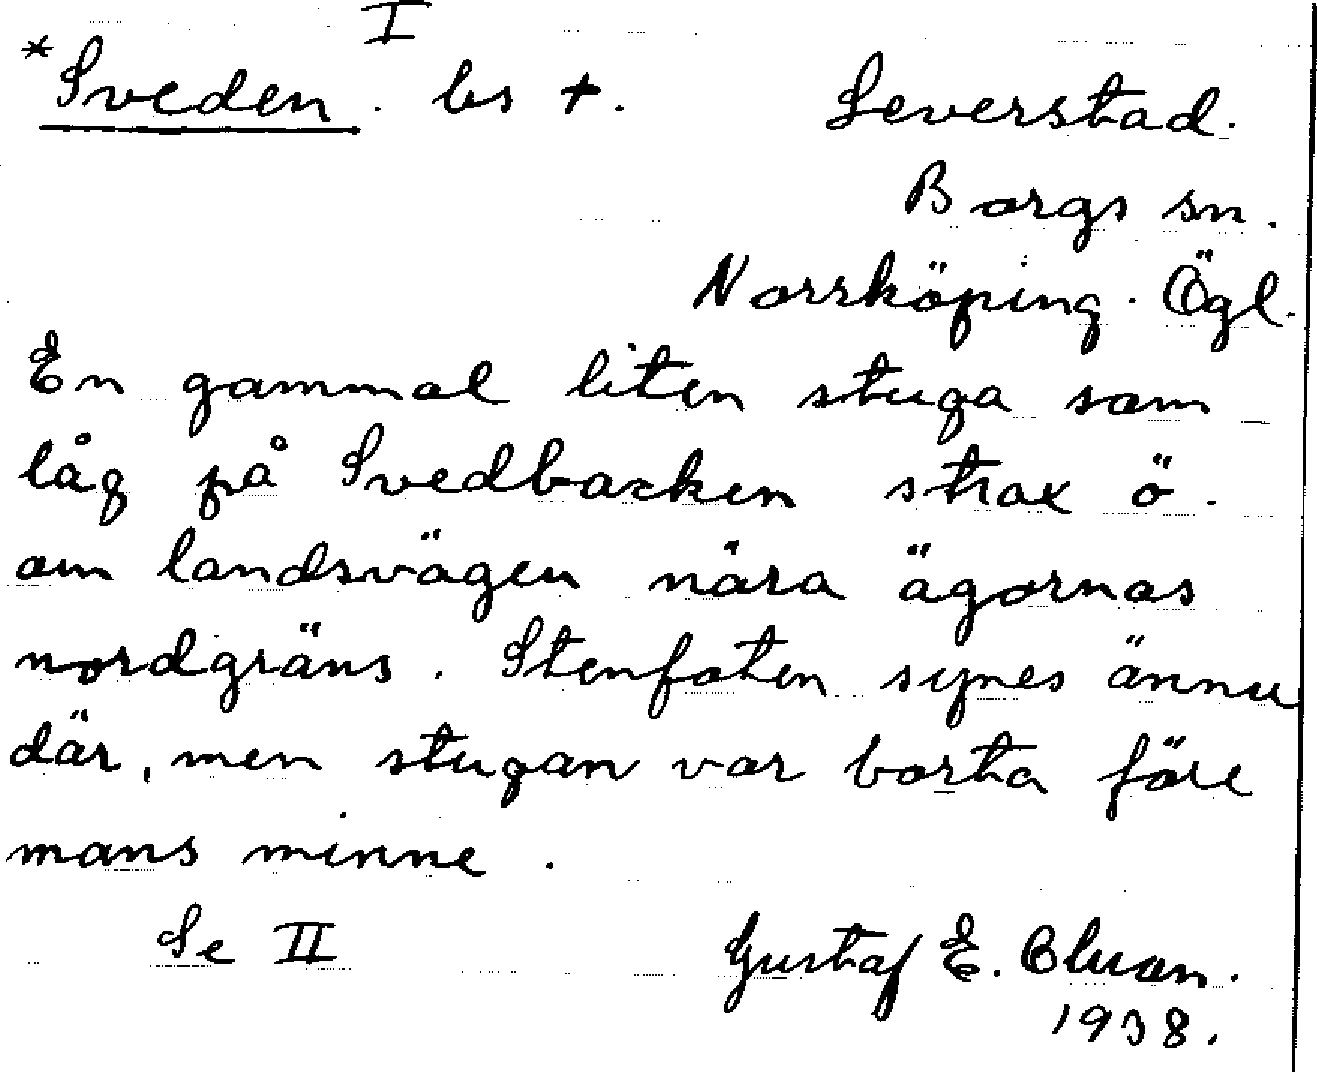 I
*Sveden. bs +. Leverstad.
Borgs sn.
Norrköping. Ögl.
En gammal liten stuga som
låg på Svedbacken strax ö.
om landsvägen nära ägornas
nordgräns. Stenfoten synes ännu
där, men stugan var borta före
mans minne.
Se II Gustaf E.
1938.